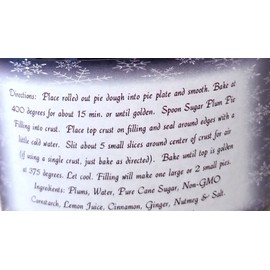 Directions: Place rolled out pie dough into pie plate and smooth. Bake at
400 degrees for about 15 min. or until golden. Spoon Sugar Plum Pie
Filling into crust. Place top crust on filling and seal around edges with a
little cold water. Slit about 5 small slices around center of crust for air
(if using a single crust, just bake as directed). Bake until top is golden
at 375 degrees. Let cool. Filling will make one large or 2 small pies.
Ingredients: Plums, Water, Pure Cane Sugar, Non-GMO
Cornstarch, Lemon Juice, Cinnamon, Ginger, Nutmeg & Salt.